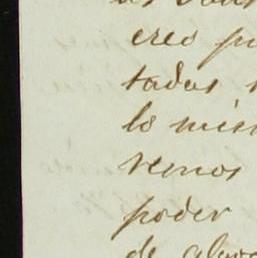 creo pu
tadas
lo mis
remos
poder
de algo